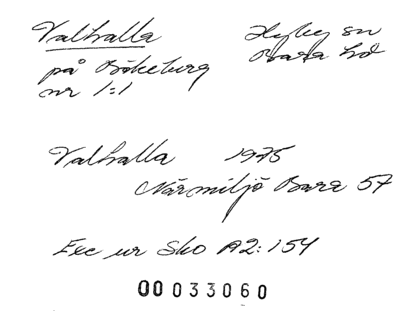 Valhalla
på Bökeberg
nr 1:1
Hyby sn
Bara hd
Valhalla 1975
Närmiljö Bara 57
Exc ur Sko A2:154
00033060